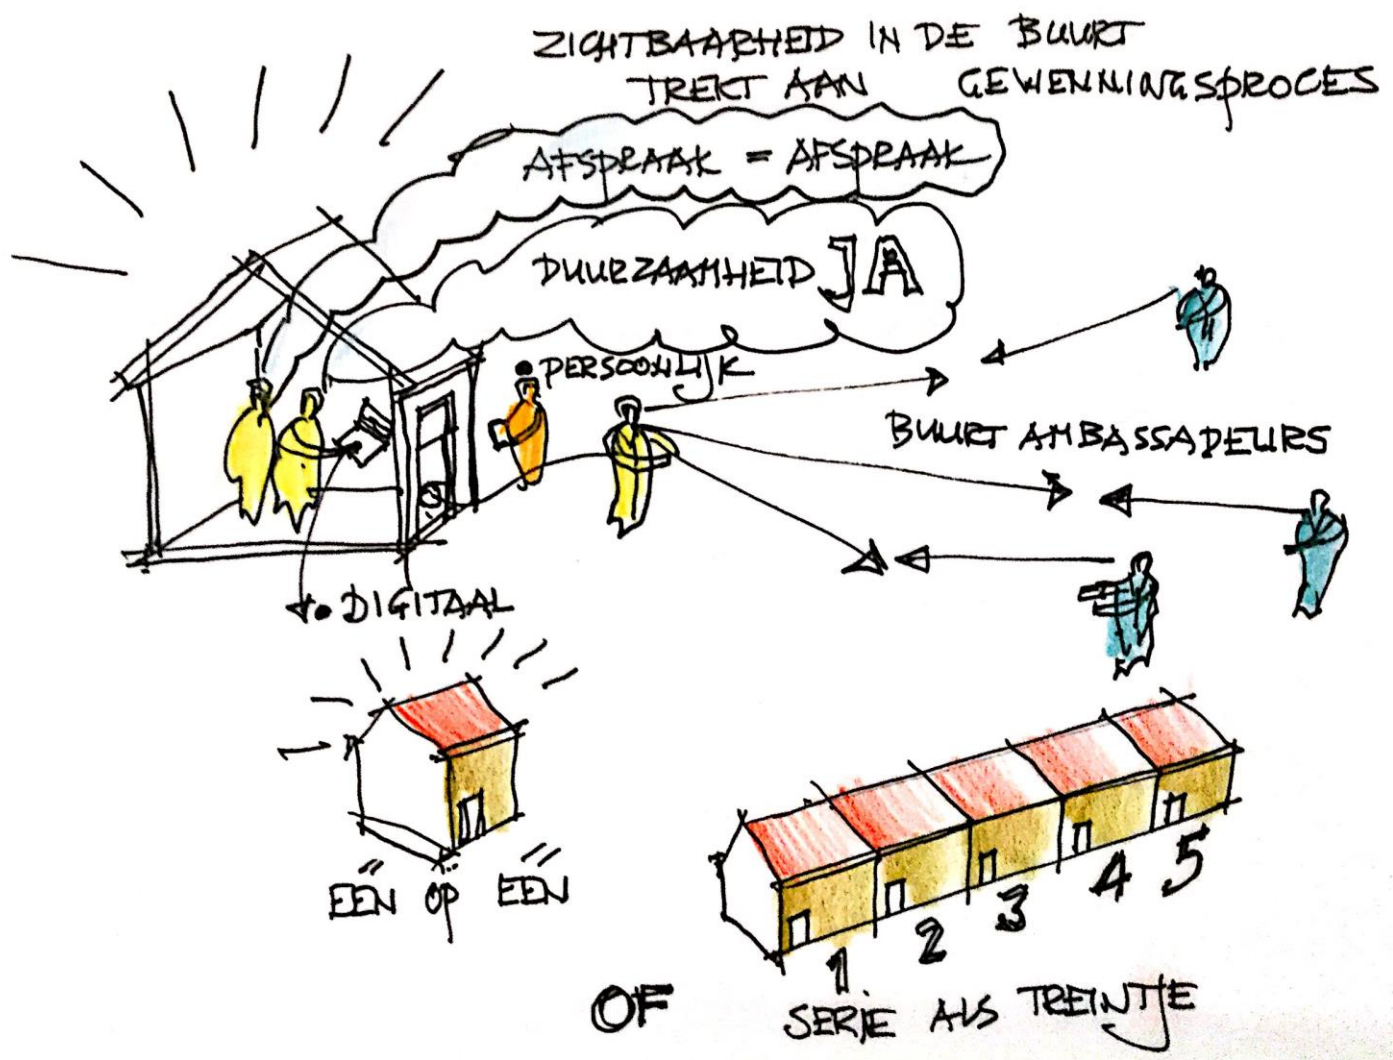 ZICHTBAARHEID IN DE BUURT
TREKT AAN GEWENNINGSPROCES
AFSPRAAK = AFSPRAAK
DUURZAAMHEID JA
• PERSOONLIJK
BUURT AMBASSADEURS
• DIGITAAL
ÉÉN OP ÉÉN
1 2 3 4 5
OF SERIE ALS TREINTJE